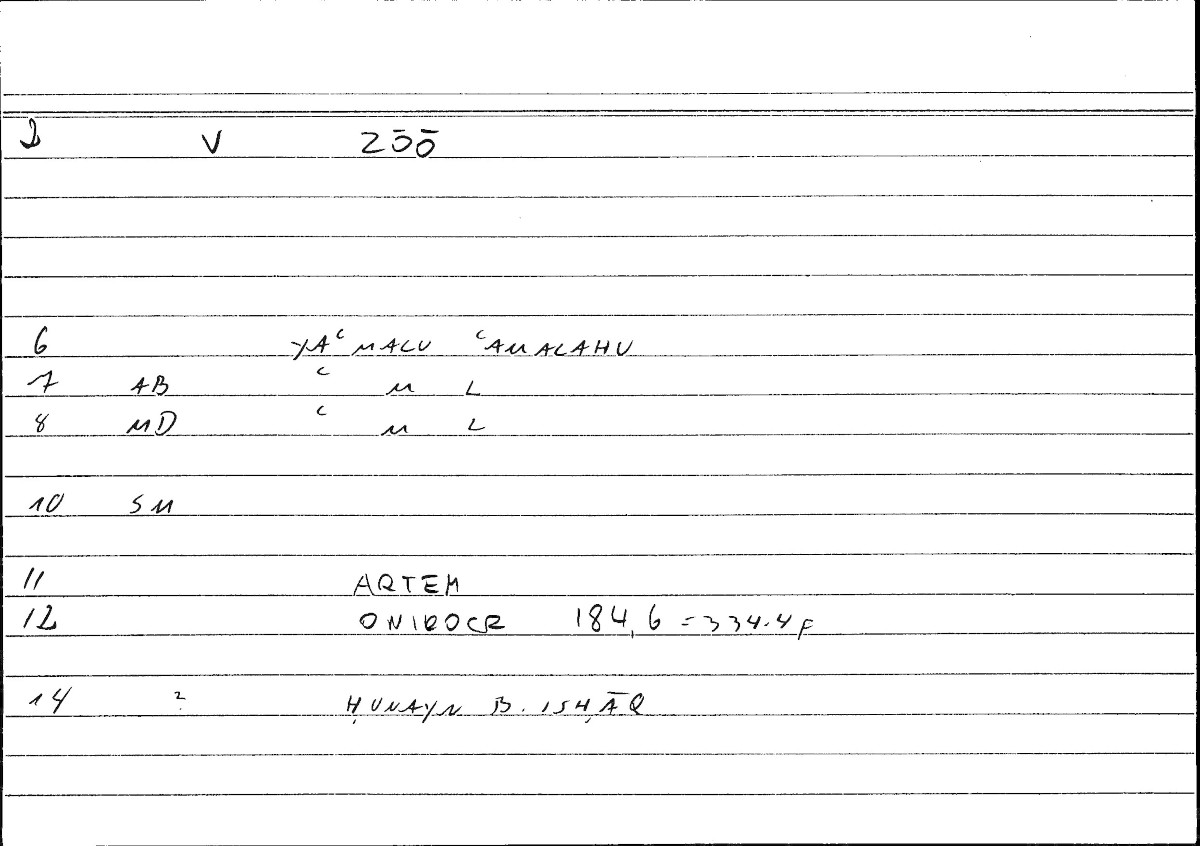 2 V 2ōō
6 YAʿMALU ʿAMALAHU
7 AB ʿ M L
8 MD ʿ M L
10 SM
11 ARTEM
12 ONIROCR 184,6 = 334.4 F
14 ? ḤUNAYN B. ISḤĀQ